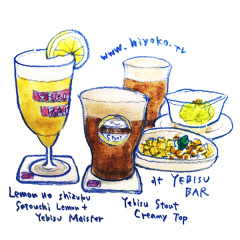 www.hiyoko.tv
Stout
at YEBISU
BAR
Lemon no shizuku
Setouchi Lemon +
Yebisu Meister
Yebisu Stout
Creamy Top